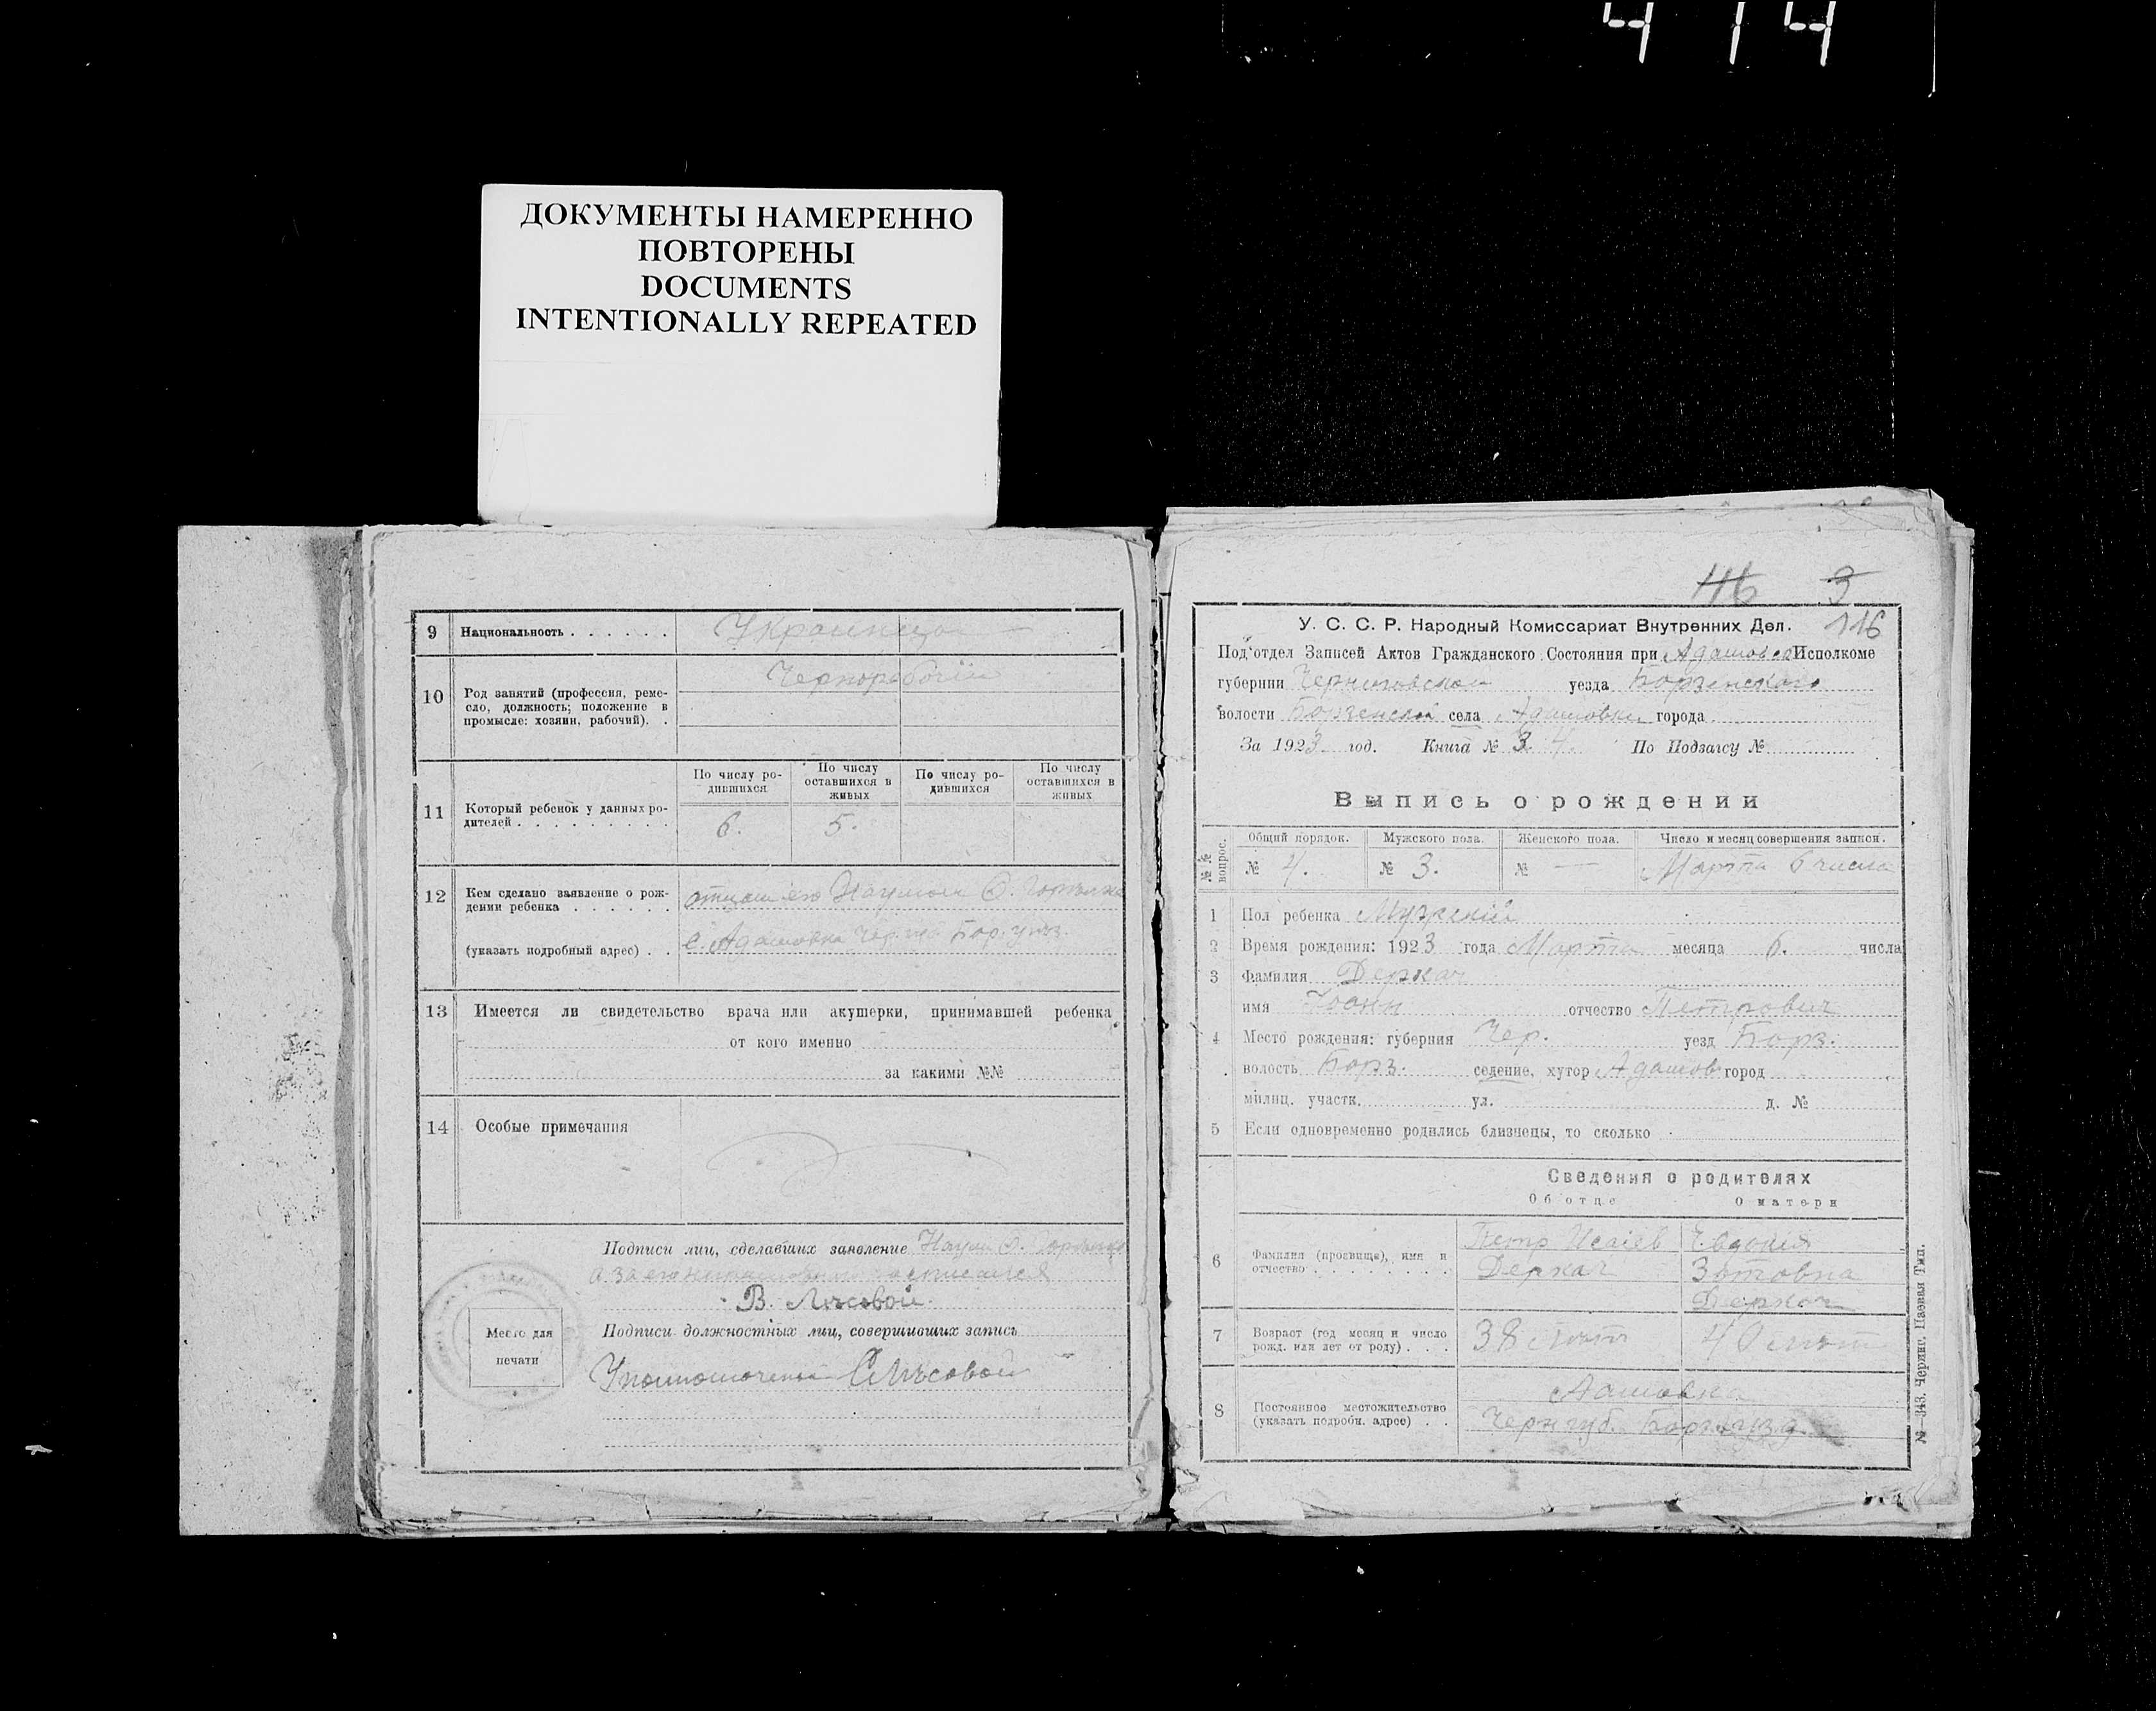 4 14
ДОКУМЕНТЫ НАМЕРЕННО
ПОВТОРЕНЫ
DOCUMENTS
INTENTIONALLY REPEATED
9 Национальность . . . . . . Украинцы
10 Род занятий (профессия, реме-
сло, должность; положение в
промысле: хозяин, рабочий). . Чернорабочій
11 Который ребенок у данных ро-
дителей . . . . . . . . .
По числу ро-
дившихся
По числу
оставшихся в
живых
По числу ро-
дившихся
По числу
оставшихся в
живых
6. 5.
12 Кем сделано заявление о рож-
дении ребенка . . . . . . отцом его Наумом
(указать подробный адрес) . . с. Адамовка Чер. Бор. уез.
13 Имеется ли свидетельство врача или акушерки, принимавшей ребенка
от кого именно
за какими №№
14 Особые примечания
Подписи лиц, сделавших заявление Наум
а за его
В. Лѣсовой
Подписи должностных лиц, совершивших запись
Место для
печати
Уполномоченный Лѣсовой
46 3
116
У. С. С. Р. Народный Комиссариат Внутренних Дел.
Под'отдел Записей Актов Гражданского Состояния при Адамовс Исполкоме
губернии Черниговской уезда Борзенского
волости Борзенской села Адамовки города
За 1923 год. Книга № 3 4. По Подзагсу №
Выпись о рождении
№№ вопрос.
Общий порядок. Мужского пола. Женского пола. Число и месяц совершения записи.
№ 4. № 3. № — Марта 6 числа
1 Пол ребенка Мужскій
2 Время рождения: 1923 года Марта месяца 6. числа
3 Фамилия Деркач
имя Іоанн отчество Петрович
4 Место рождения: губерния Чер. уезд Борз.
волость Борз. селение, хутор Адамов город
милиц. участк. ул. д. №
5 Если одновременно родились близнецы, то сколько
Сведения о родителях
Об отце О матери
6 Фамилия (прозвище), имя и
отчество . . . . . . . . .
Петр
Деркач
Евдокия
Зотовна
Деркач
7 Возраст (год месяц и число
рожд. или лет от роду) . . . 38 лѣт 40 лѣт
8 Постоянное местожительство
(указать подробн. адрес) . .
Черн губ. Борз узд
№—343. Черниг. Паевая Тип.